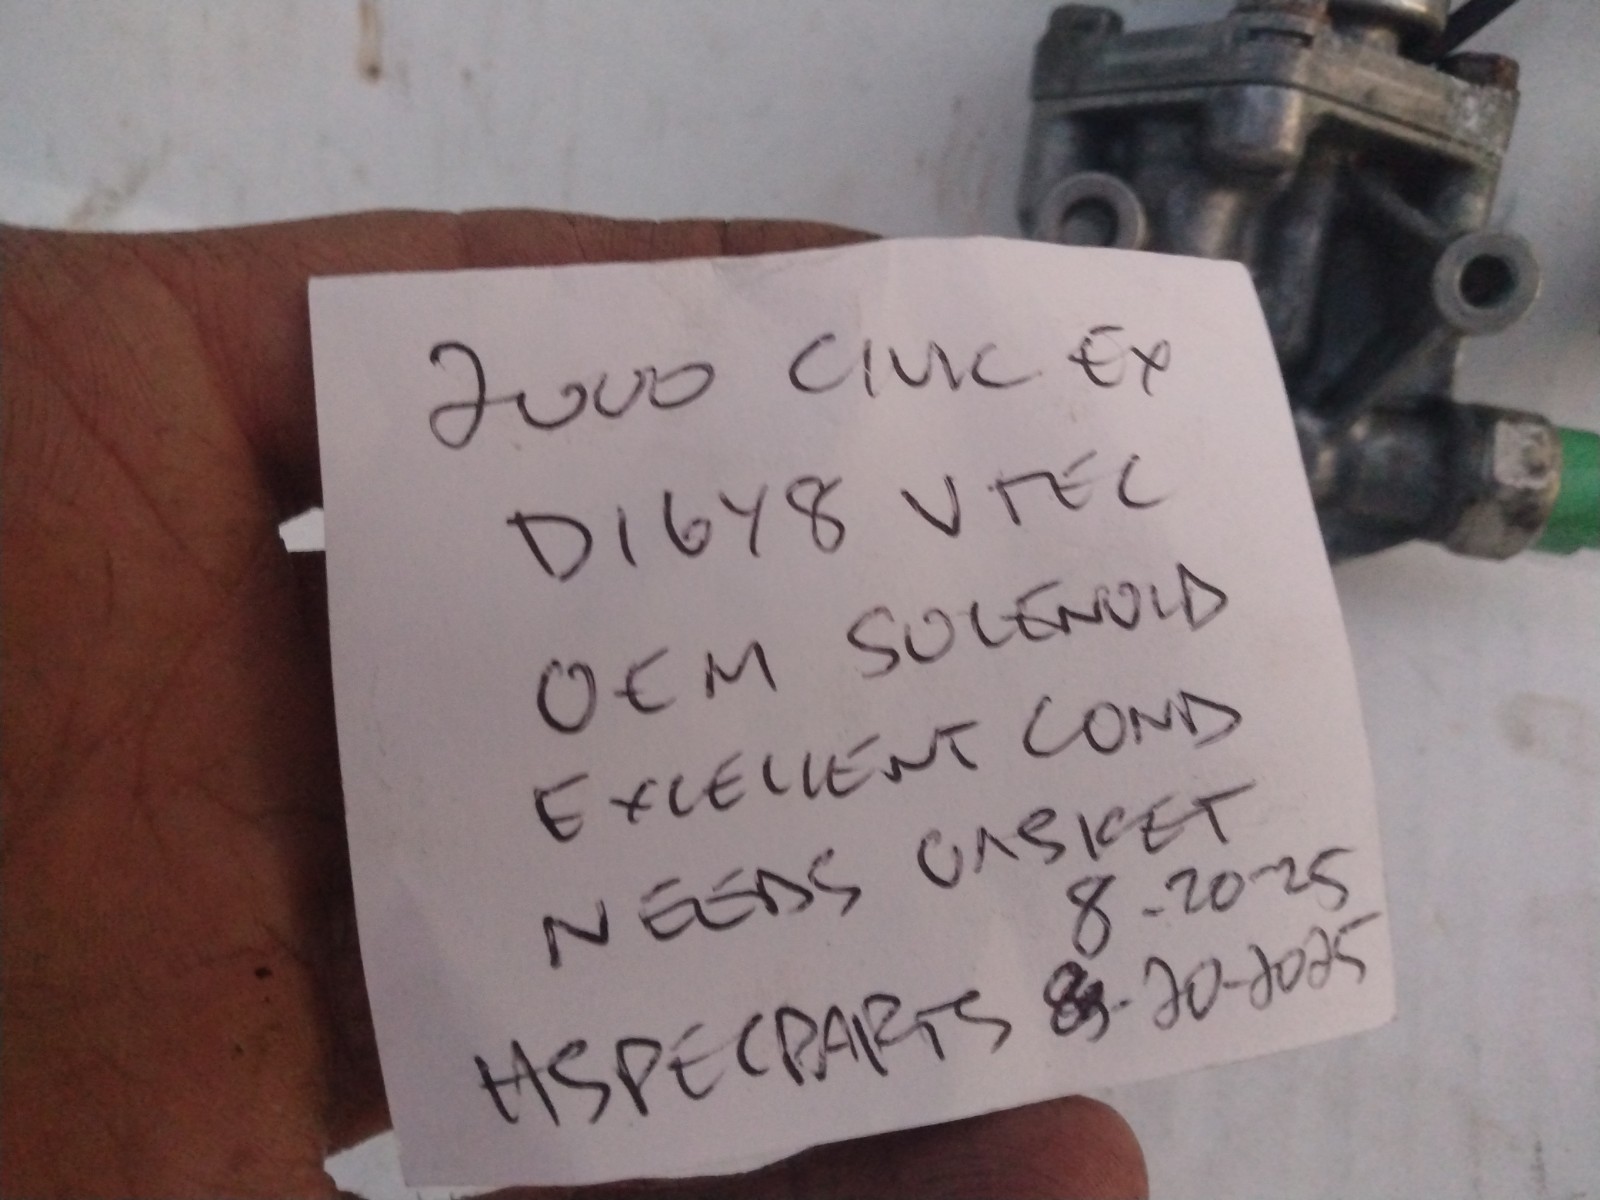 2000 CIVIC EX
D16Y8 VTEC
OEM SOLENOID
EXCELLENT COND
NEEDS GASKET
8-20-25
HSPECPARTS 8-20-2025